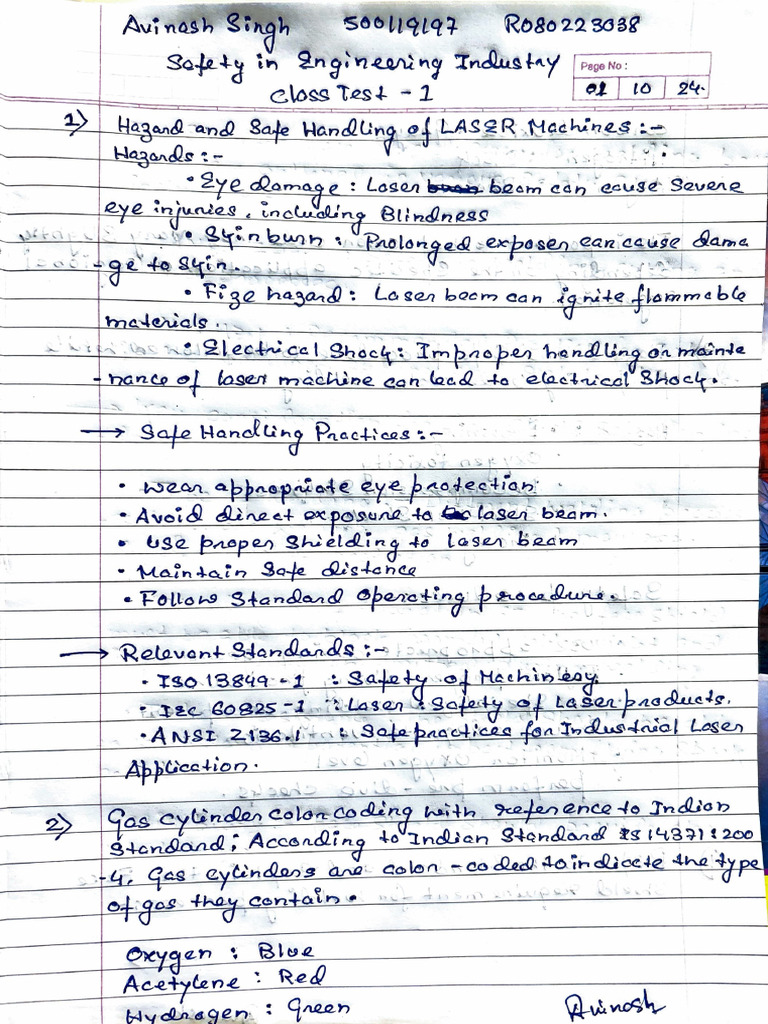 Avinash Singh 500119197 R080223038
Safety in Engineering Industry
Page No :
01 10 24.
Class Test - 1
1) Hazard and Safe Handling of LASER Machines :-
Hazards :-
• Eye damage : Laser beam can cause severe
eye injuries, including Blindness
• Skin burn : Prolonged exposer can cause dama
-ge to skin.
• Fire hazard : Laser beam can ignite flammable
materials.
• Electrical Shock : Improper handling or mainte
-nance of laser machine can lead to electrical shock.
→ Safe Handling Practices :-
• Wear appropriate eye protection
• Avoid direct exposure to laser beam.
• Use proper shielding to laser beam
• Maintain safe distance
• Follow Standard operating procedure.
→ Relevant Standards :-
• ISO 13849-1 : Safety of Machinery
• IEC 60825-1 : Laser : Safety of Laser products.
• ANSI Z136.1 : Safe practices for Industrial Laser
Application.
2) Gas cylinder color coding with reference to Indian
Standard; According to Indian Standard IS 14371:200
-4. Gas cylinders are color-coded to indicate the type
of gas they contain.
Oxygen : Blue
Acetylene : Red
Hydrogen : Green
Avinash